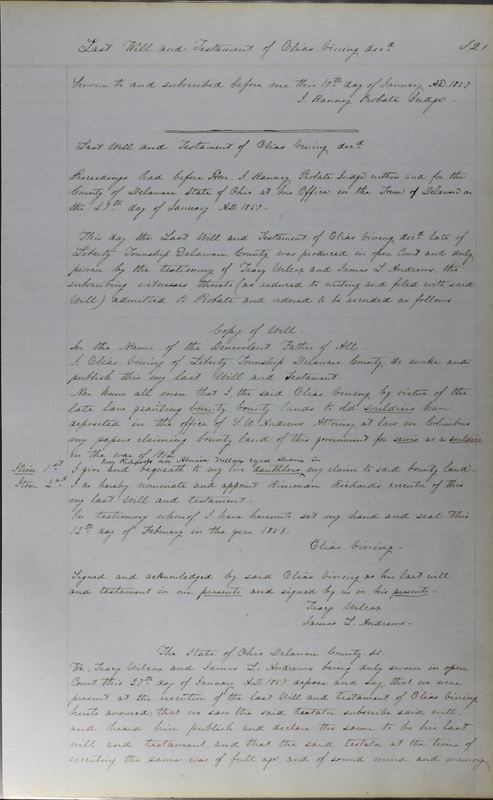 Last Will and Testament of Elias Vining decd 521
Sworn to and subscribed before me this 10th day of January AD. 1857
J. Ranney Probate Judge -
Last Will and Testament of Elias Vining decd
Proceedings had before Hon. J. Ranney Probate Judge within and for the
County of Delaware State of Ohio at his Office in the Town of Delaware on
the 27th day of January AD 1857.
This day the Last Will and Testament of Elias Vining decd late of
Liberty Township Delaware County was produced in open Court and duly
proven by the testimony of Tracy Wilcox and James L. Andrews, the
subscribing witnesses thereto (as reduced to writing and filed with said
Will) admitted to Probate and ordered to be recorded as follows
Copy of Will.
In the Name of the Benevolent Father of All
I Elias Vining of Liberty Township Delaware County do make and
publish this my last Will and Testament
Now know all men that I, the said Elias Vining by virtue of the
late law granting bounty County lands to old souldiers have
deposited in the office of Andrews Attorney at law in Columbus
my papers claiming bounty land of this government for servis as a souldier
in the war of 1812
Lucy Richards and Almira equal shares in
Item 1st I give and bequeath to my two daughters my claim to said bounty land.
Item 2nd I do hereby nominate and appoint Rinaman Richards executor of this
my last Will and testament.
In testimony whereof I have hereunto set my hand and seal this
12th day of February in the year 1851.
Elias Vining -
Signed and acknowledged by said Elias Vining as his last will
and testament in our presents and signed by us in his presents -
Tracy Wilcox
James L. Andrews -
The State of Ohio Delaware County. ss.
We, Tracy Wilcox and James L. Andrews being duly sworn in open
Court this 27th day of January AD 1857 depose and say, that we were
present at the execution of the last Will and testament of Elias Vining
hereto annexed; that we saw the said testator subscribe said will,
and heard him publish and declare the same to be his last
will and testament, and that the said testator at the time of
executing the same was of full age and of sound mind and memory